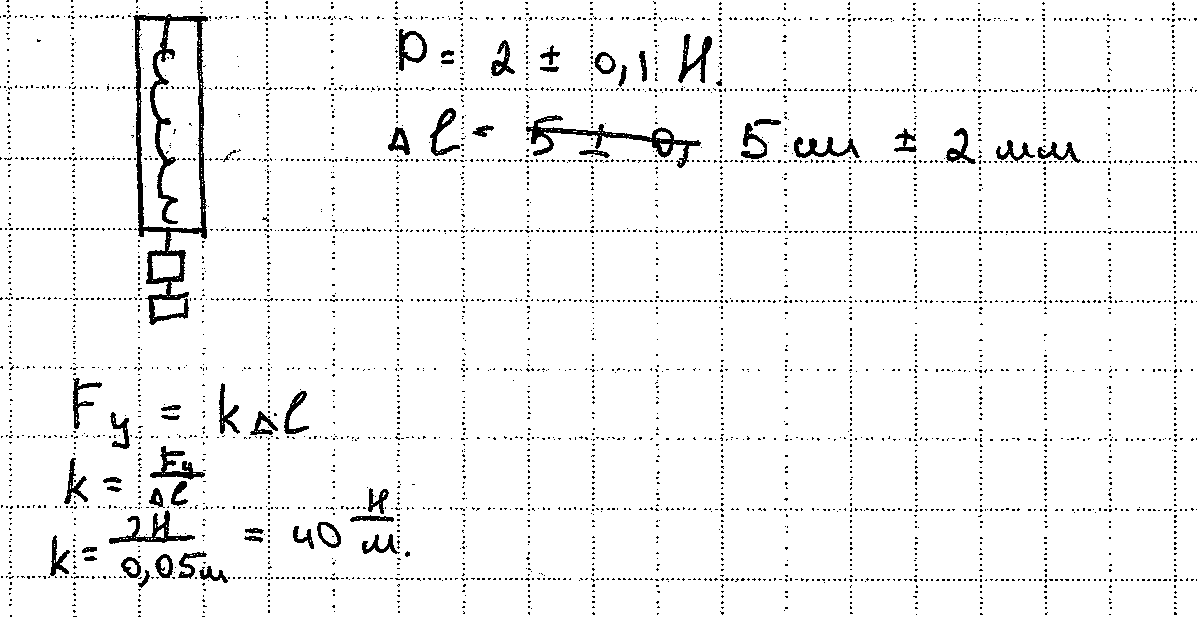 P = 2 ± 0,1 Н.
Δl = 5 ± 0, 5 см ± 2 мм
Fу = kΔl
k = Fу/Δl
k = 2Н/0,05м = 40 Н/м.